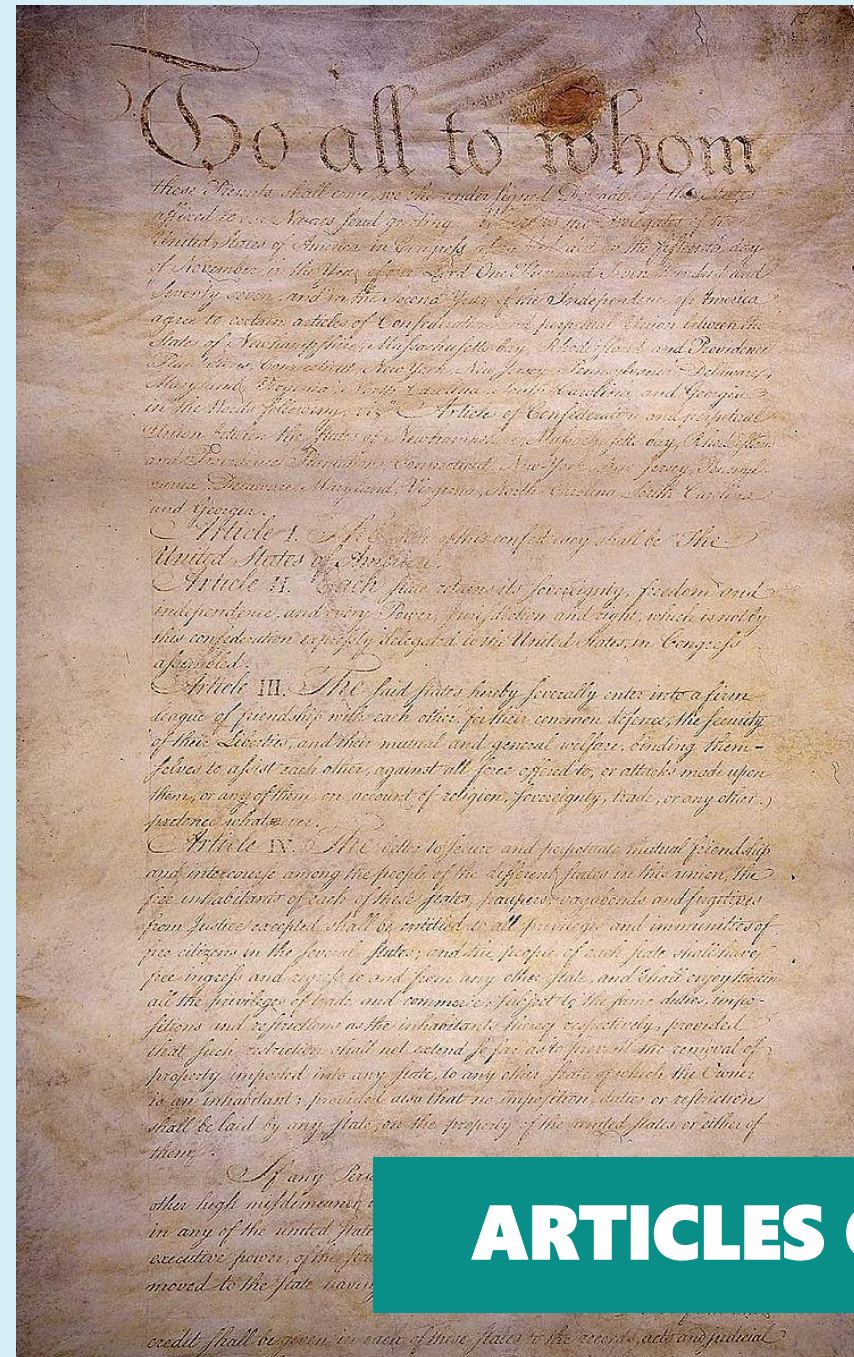 To all to whom
these Presents shall come, we the under signed Delegates of the States
affixed to our Names send greeting. Whereas the Delegates of the
United States of America in Congress assembled did on the fifteenth day
of November in the Year of our Lord One Thousand Seven Hundred and
Seventy seven, and in the Second Year of the Independence of America
agree to certain articles of Confederation and perpetual Union between the
States of Newhampshire, Massachusetts-bay, Rhodeisland and Providence
Plantations, Connecticut, New York, New Jersey, Pennsylvania, Delaware,
Maryland, Virginia, North-Carolina, South-Carolina, and Georgia
in the Words following, viz. "Articles of Confederation and perpetual
Union between the States of Newhampshire, Massachusetts-bay, Rhodeisland
and Providence Plantations, Connecticut, New-York, New-Jersey, Pennsyl-
vania, Delaware, Maryland, Virginia, North-Carolina, South-Carolina
and Georgia.
Article I. The of this confederacy shall be "The
United States of America.
Article II. Each state retains its sovereignty, freedom and
independence, and every Power, Jurisdiction and right, which is not by
this confederation expressly delegated to the United States, in Congress
assembled.
Article III. The said states hereby severally enter into a firm
league of friendship with each other, for their common defence, the security
of their Liberties, and their mutual and general welfare, binding them-
selves to assist each other, against all force offered to, or attacks made upon
them, or any of them, on account of religion, sovereignty, trade, or any other
pretence whatever.
Article IV. The better to secure and perpetuate mutual friendship
and intercourse among the people of the different states in this union, the
free inhabitants of each of these states, paupers, vagabonds and fugitives
from Justice excepted, shall be entitled to all privileges and immunities of
free citizens in the several states; and the people of each state shall have
free ingress and regress to and from any other state, and shall enjoy therein
all the privileges of trade and commerce, subject to the same duties, impo-
sitions and restrictions as the inhabitants thereof respectively, provided
that such restriction shall not extend so far as to prevent the removal of
property imported into any state, to any other state of which the Owner
is an inhabitant; provided also that no imposition, duties or restriction
shall be laid by any state, on the property of the united states, or either of
them.
If any Pers
other high misdemeanor
in any of the united stat
executive power, of the
moved to the state having
ARTICLES
credit shall be given in each of these states to the records, acts and judicial